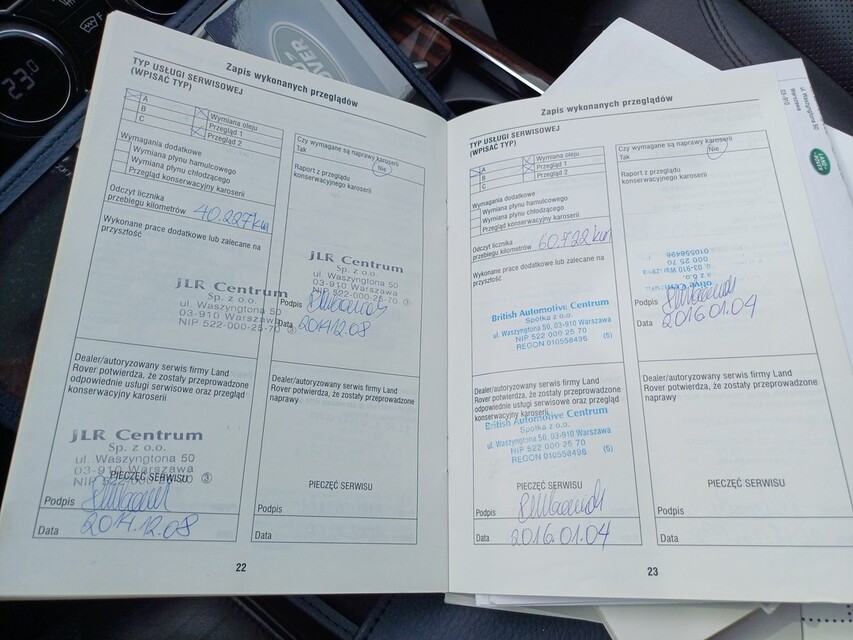 23.0
ROVER
Zapis wykonanych przeglądów
TYP USŁUGI SERWISOWEJ
(WPISAĆ TYP)
A
B
C
Wymiana oleju
Przegląd 1
Przegląd 2
Wymagania dodatkowe
Wymiana płynu hamulcowego
Wymiana płynu chłodzącego
Przegląd konserwacyjny karoserii
Odczyt licznika
przebiegu kilometrów 40.227km
Wykonane prace dodatkowe lub zalecane na
przyszłość
JLR Centrum
Sp. z o.o.
ul. Waszyngtona 50
03-910 Warszawa
NIP 522-000-25-70
Czy wymagane są naprawy karoserii
Tak Nie
Raport z przeglądu
konserwacyjnego karoserii
JLR Centrum
Sp. z o.o.
ul. Waszyngtona 50
03-910 Warszawa
NIP 522-000-25-70
Podpis
Data 2014.12.08
Dealer/autoryzowany serwis firmy Land
Rover potwierdza, że zostały przeprowadzone
odpowiednie usługi serwisowe oraz przegląd
konserwacyjny karoserii
JLR Centrum
Sp. z o.o.
ul. Waszyngtona 50
03-910 Warszawa
PIECZĘĆ SERWISU
Podpis
Data 2014.12.08
Dealer/autoryzowany serwis firmy Land
Rover potwierdza, że zostały przeprowadzone
naprawy
PIECZĘĆ SERWISU
Podpis
Data
22
Zapis wykonanych przeglądów
TYP USŁUGI SERWISOWEJ
(WPISAĆ TYP)
A
B
C
Wymiana oleju
Przegląd 1
Przegląd 2
Wymagania dodatkowe
Wymiana płynu hamulcowego
Wymiana płynu chłodzącego
Przegląd konserwacyjny karoserii
Odczyt licznika
przebiegu kilometrów 60.722 km
Wykonane prace dodatkowe lub zalecane na
przyszłość
British Automotive Centrum
Spółka z o.o.
ul. Waszyngtona 50, 03-910 Warszawa
NIP 522 000 25 70
REGON 010558496 (5)
Czy wymagane są naprawy karoserii
Tak Nie
Raport z przeglądu
konserwacyjnego karoserii
010558496
000 25 70
Podpis
Data 2016.01.04
Dealer/autoryzowany serwis firmy Land
Rover potwierdza, że zostały przeprowadzone
odpowiednie usługi serwisowe oraz przegląd
konserwacyjny karoserii
British Automotive Centrum
Spółka z o.o.
ul. Waszyngtona 50, 03-910 Warszawa
NIP 522 000 25 70
REGON 010558496 (5)
PIECZĘĆ SERWISU
Podpis
Data 2016.01.04
Dealer/autoryzowany serwis firmy Land
Rover potwierdza, że zostały przeprowadzone
naprawy
PIECZĘĆ SERWISU
Podpis
Data
23